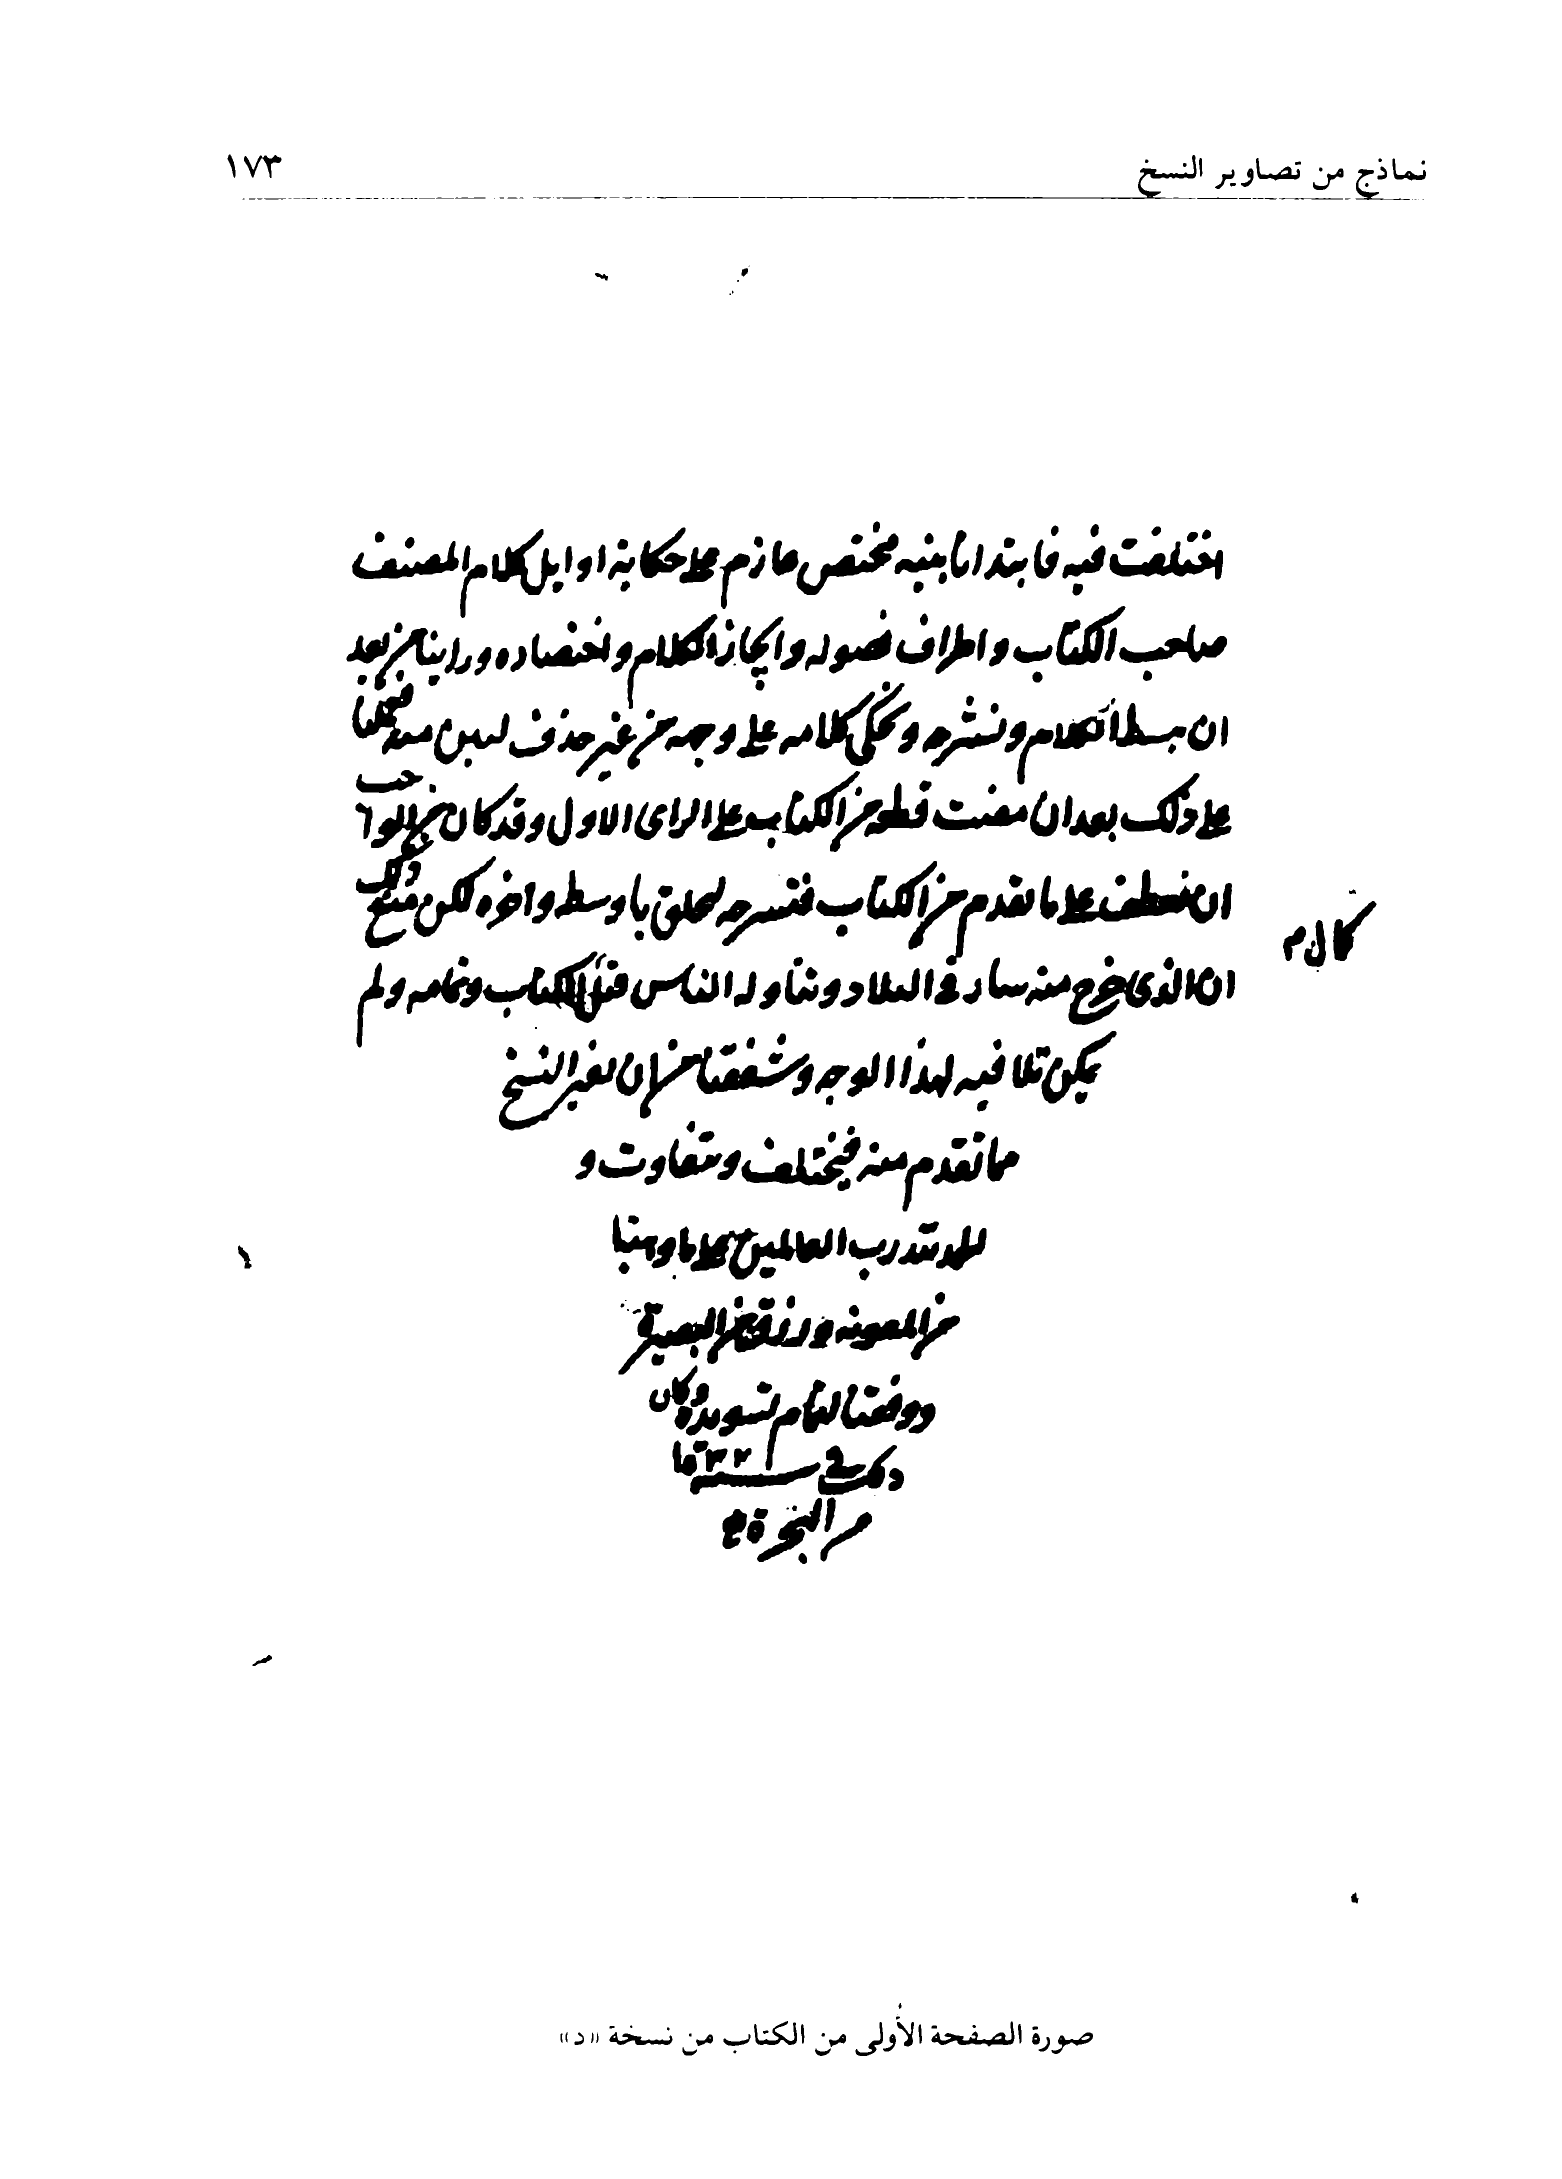 نماذج من تصاوير النسخ
١٧٣
اختلفت فيه فابتدانا بنيه مختصر عازم على حكاية اوايل كلام المصنف
صاحب الكتاب واطراف فصوله وايجاز الكلام واختصاره وراينا من بعد
ان بسط الكلام ونشرحه ونحكى كلامه على وجهه من غير حذف لسن منه فعملنا
على ذلك بعد ان مضت قطعه من الكتاب على الراى الاول وقد كان من الواجب
ان نعطف على ما تقدم من الكتاب فنشرحه ليلحق باوسطه واخره لكن منع ذلك
كال م
ان الذى خرج منه سار فى البلاد وتناوله الناس قبل الكتاب وتمامه ولم
يمكن تلافيه لهذا الوجه وشفقنا من ان تغير النسخ
مما تقدم منه فيختلف وتتفاوت و
الحمد لله رب العالمين على ما وهبنا
من المعونه ورزق من البصيرة
ووفقنا لتمام تسويده وكان
ذلك فى سنة
من الهجرة
صورة الصفحة الأولى من الكتاب من نسخة «د»